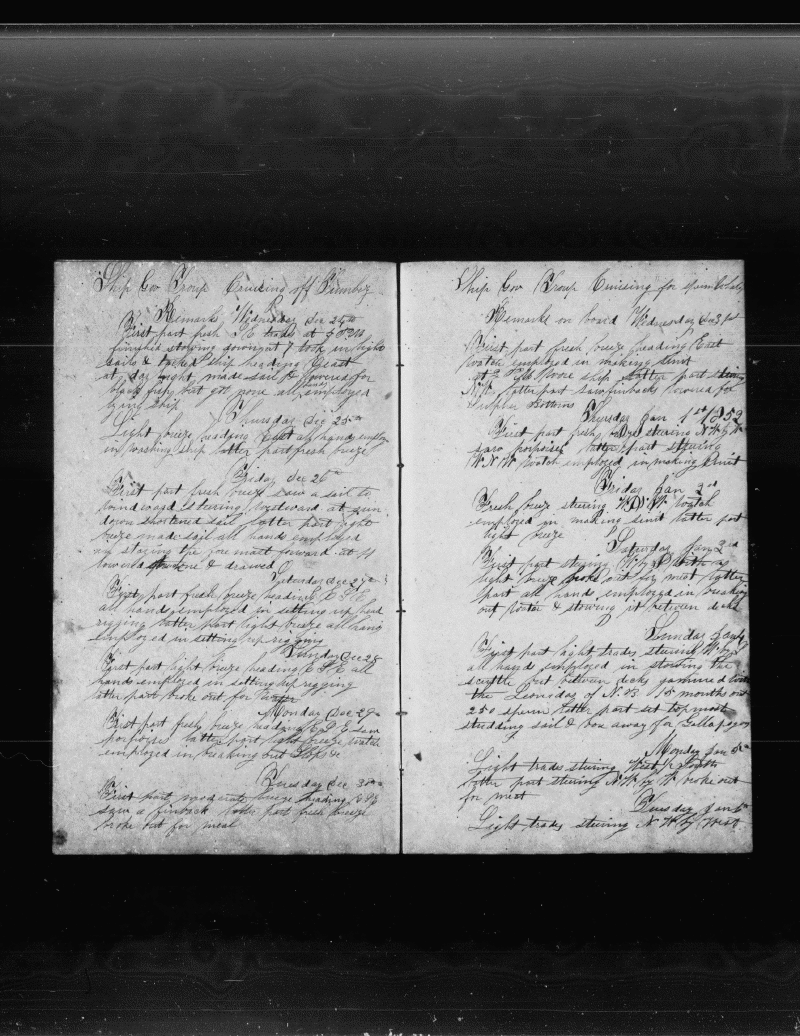 Ship Gov Troup Cruising off Tumbez
Remarks Wednesday Dec 24th
First part fresh S E trades at 5 P M
finished stowing down at 7 took in light
sails & tacked ship heading East
at day light made sail & lowered for
black fish but got none all employed
Thursday Dec 25th
Light breeze heading East all hands employ
in washing ship latter part fresh breeze
Friday Dec 26th
First part fresh breeze saw a sail to
windward steering westward at sun
down shortened sail latter part light
breeze made sail all hands employed
in staying the fore mast forward at 4
lowered
Saturday Dec 27th
First part fresh breeze heading E S E
all hands employed in setting up head
rigging latter part light breeze all hands
employed in setting up rigging
Sunday Dec 28
First part light breeze heading E S E all
hands employed in setting up rigging
latter part broke out for water
Monday Dec 29
First part fresh breeze heading E S E saw
porpoises latter part light breeze watch
employed in breaking out
Tuesday Dec 30th
First part moderate breeze heading E S E
saw a finback latter part fresh breeze
broke out for meal
Ship Gov Troup Cruising for Sperm Whales
Remarks on board Wednesday Dec 31st
First part fresh breeze heading East
watch employed in making sinit
at P M Wore ship latter part steering
N W latter part saw finbacks lowered for
Sulphur Bottoms
Thursday Jan 1st 1852
First part fresh breeze steering N W by W
saw porpoises latter part steering
W N W watch employed in making sinit
Friday Jan 2nd
Fresh breeze steering W N W Watch
employed in making sinit latter part
light breeze
Saturday Jan 3rd
First part steering W by N with a
light breeze broke out for meat latter
part all hands employed in breaking
out water & stowing it between decks
Sunday Jan 4
First part light trades steering W by N
all hands employed in stowing the
between decks gammed with
the Leonidas of N. B 15 months out
250 sperm latter part set top mast
studding sail & bore away for Gallapagos
Monday Jan 5th
Light trades steering West 1/2 South
latter part steering N W by W broke out
for meat
Tuesday Jan 6th
Light trades steering N W by West